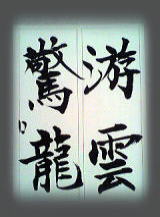 游雲
驚龍